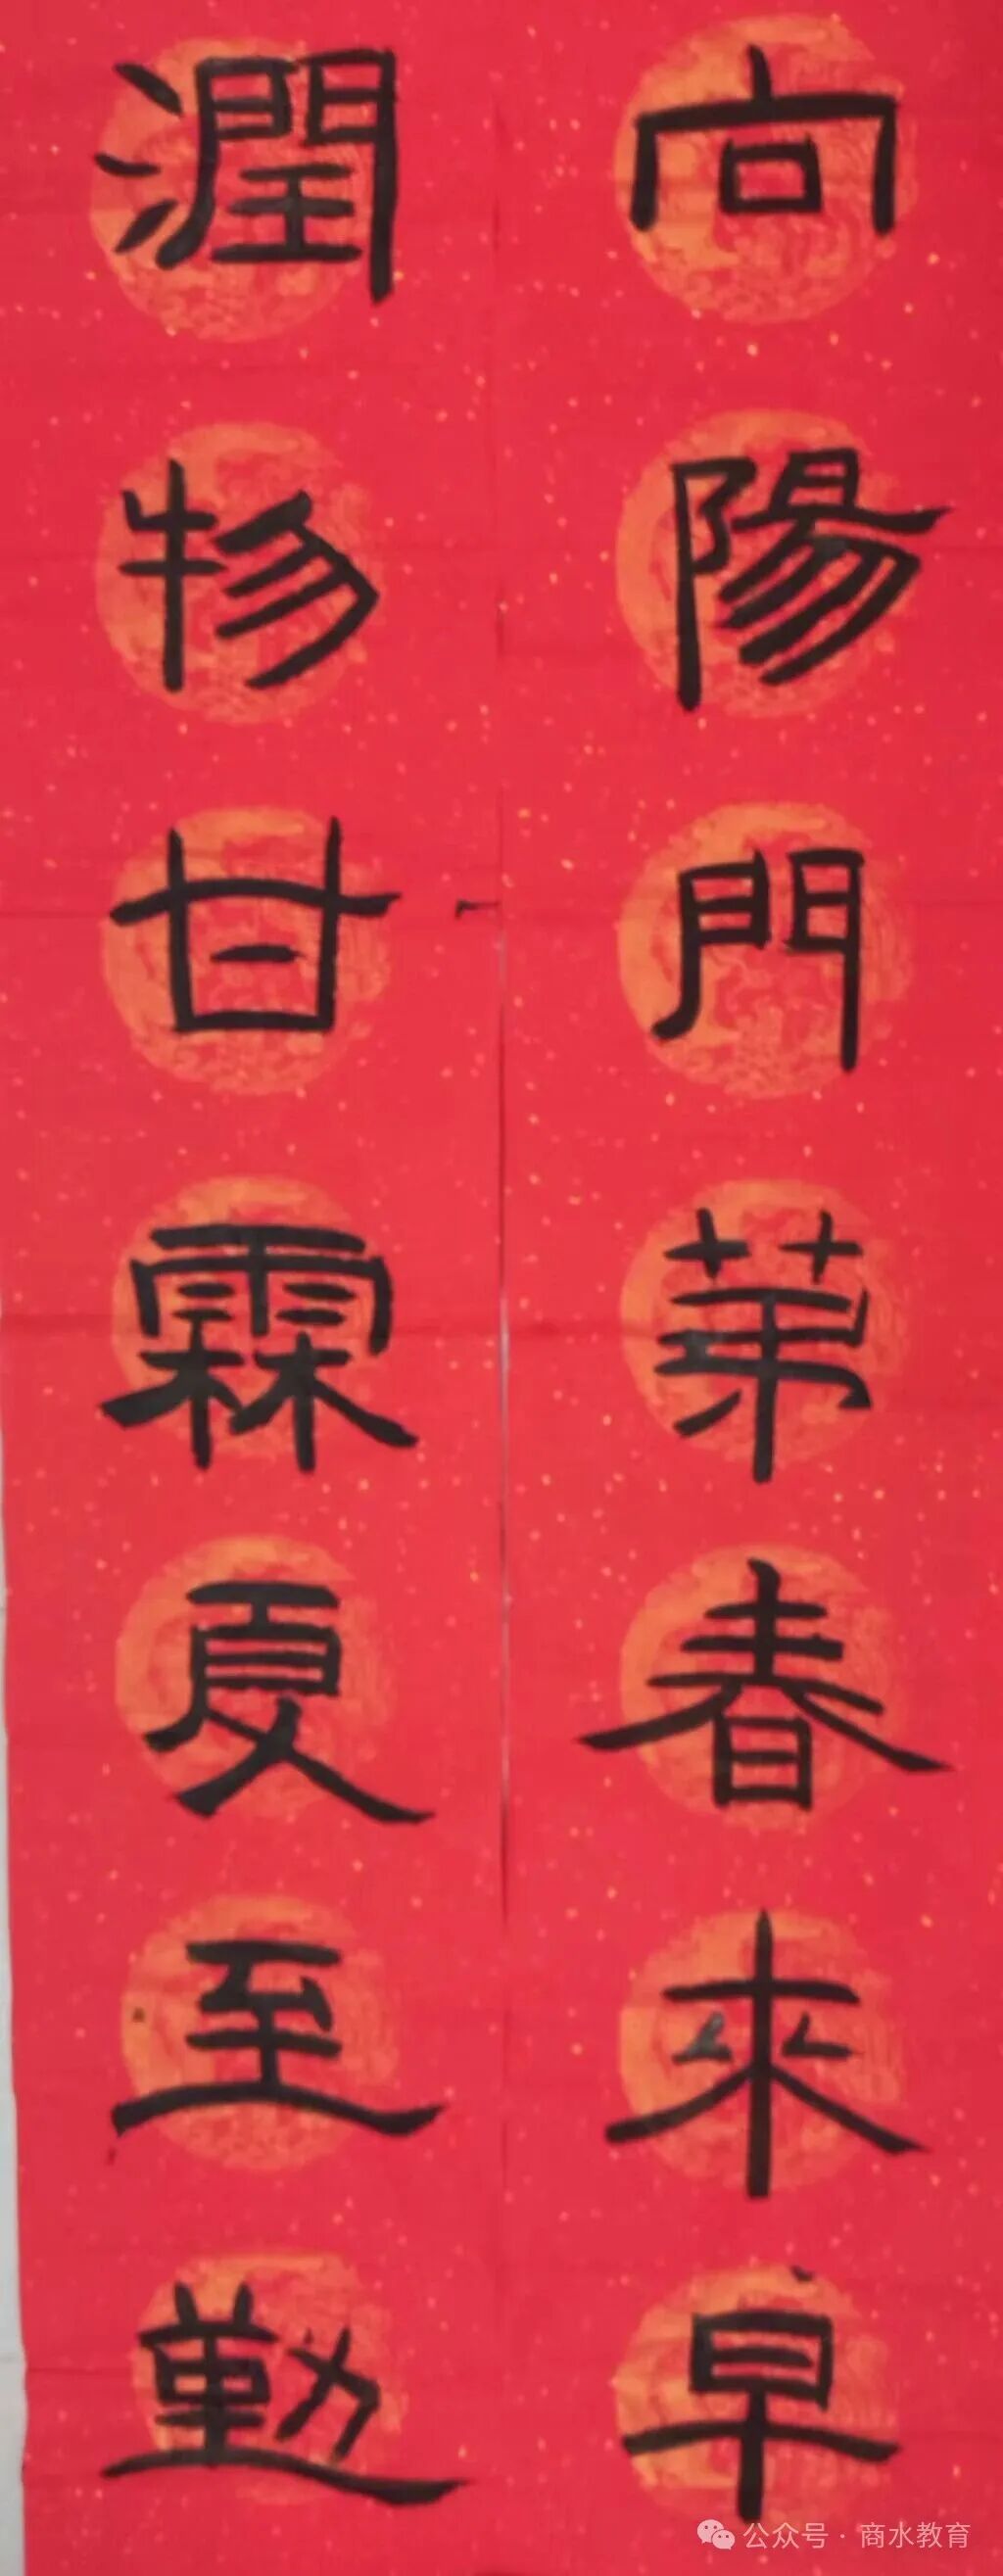 向陽門第春來早
潤物甘霖夏至勤
公众号·商水教育